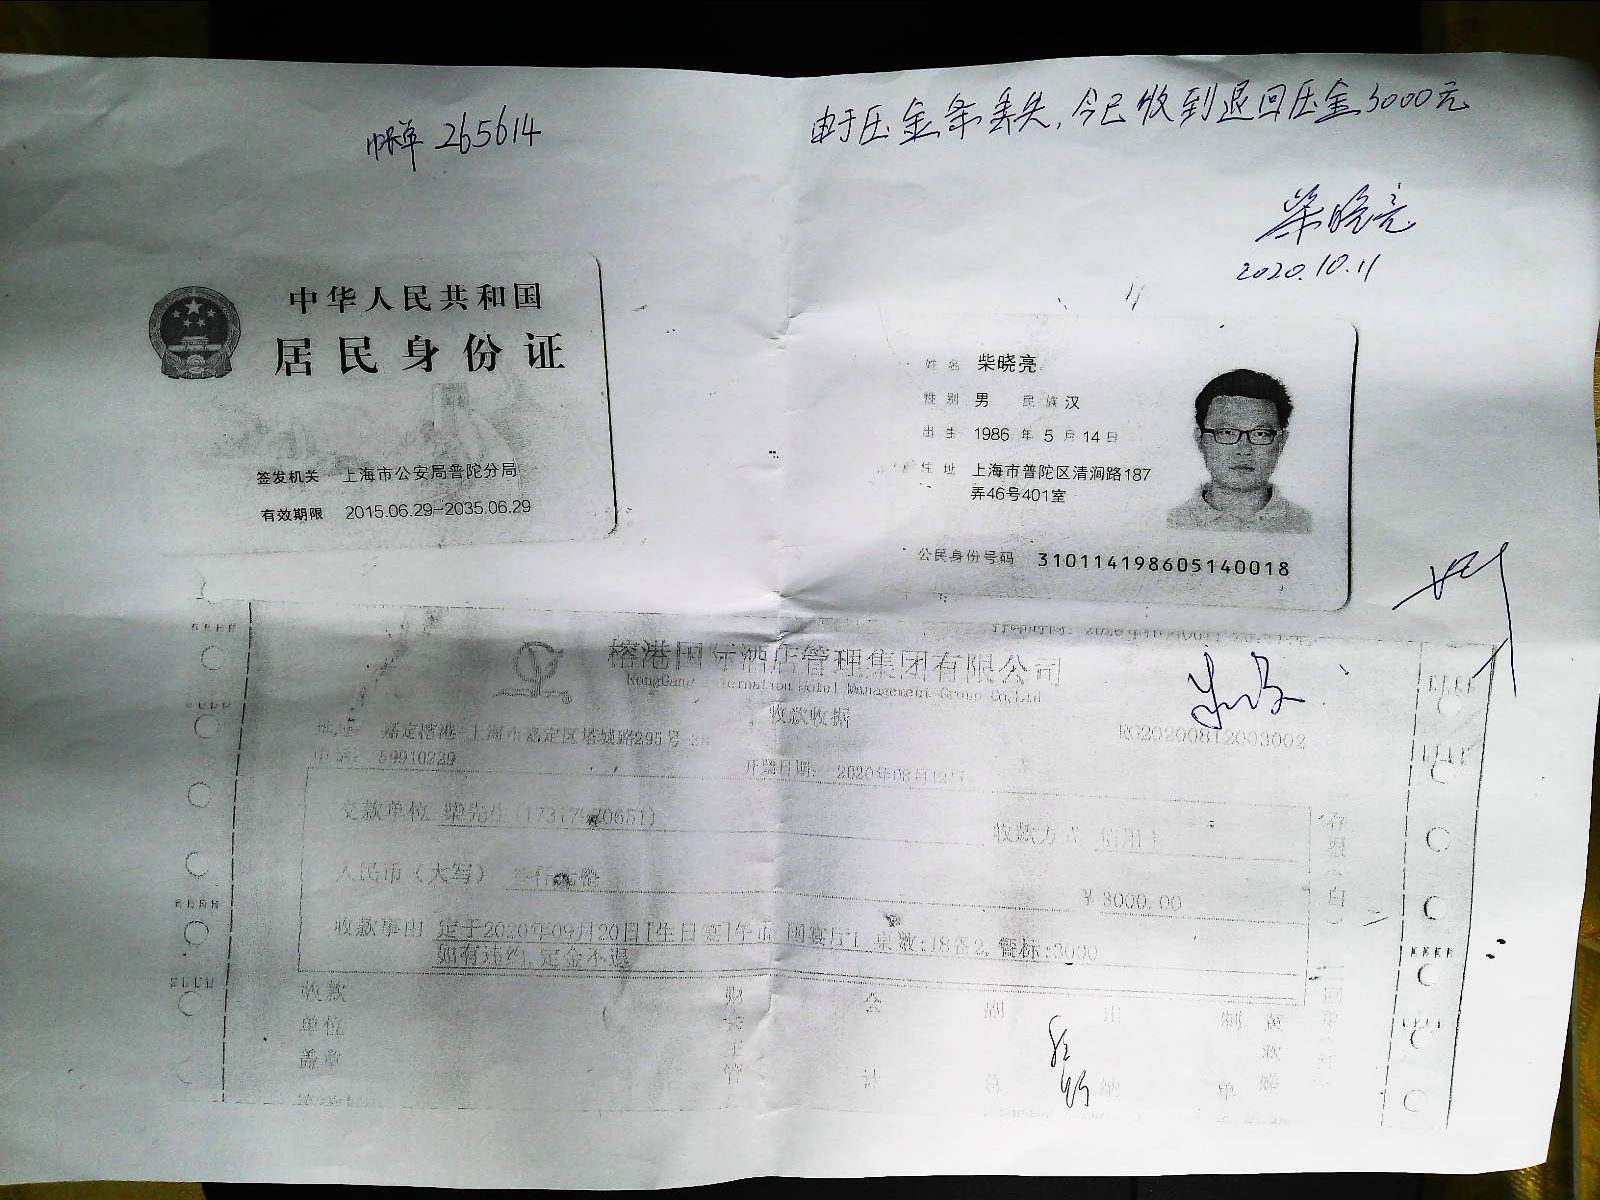 帐单 265614
由于压金条丢失，今已收到退回压金3000元
柴晓亮
2020.10.11
中华人民共和国
居民身份证
签发机关 上海市公安局普陀分局
有效期限 2015.06.29-2035.06.29
姓名 柴晓亮
性别 男 民族 汉
出生 1986 年 5 月 14 日
住址 上海市普陀区清涧路187
弄46号401室
公民身份号码 310114198605140018
榕港国际酒店管理集团有限公司
RongGang International Hotel Management Group Co,Ltd
收款收据
地址: 嘉定榕港 上海市嘉定区塔城路295号
RG20200812003002
电话: 59910229
开票日期: 2020年08月12日
交款单位 柴先生
收款方式 信用卡
人民币（大写）
￥3000.00
收款事由 定于2020年09月20日[生日宴]午市 国宴厅1 桌数:18备2, 餐标:3000
如有违约,定金不退
收款
单位
盖章
财会主管
会计
出纳
制单